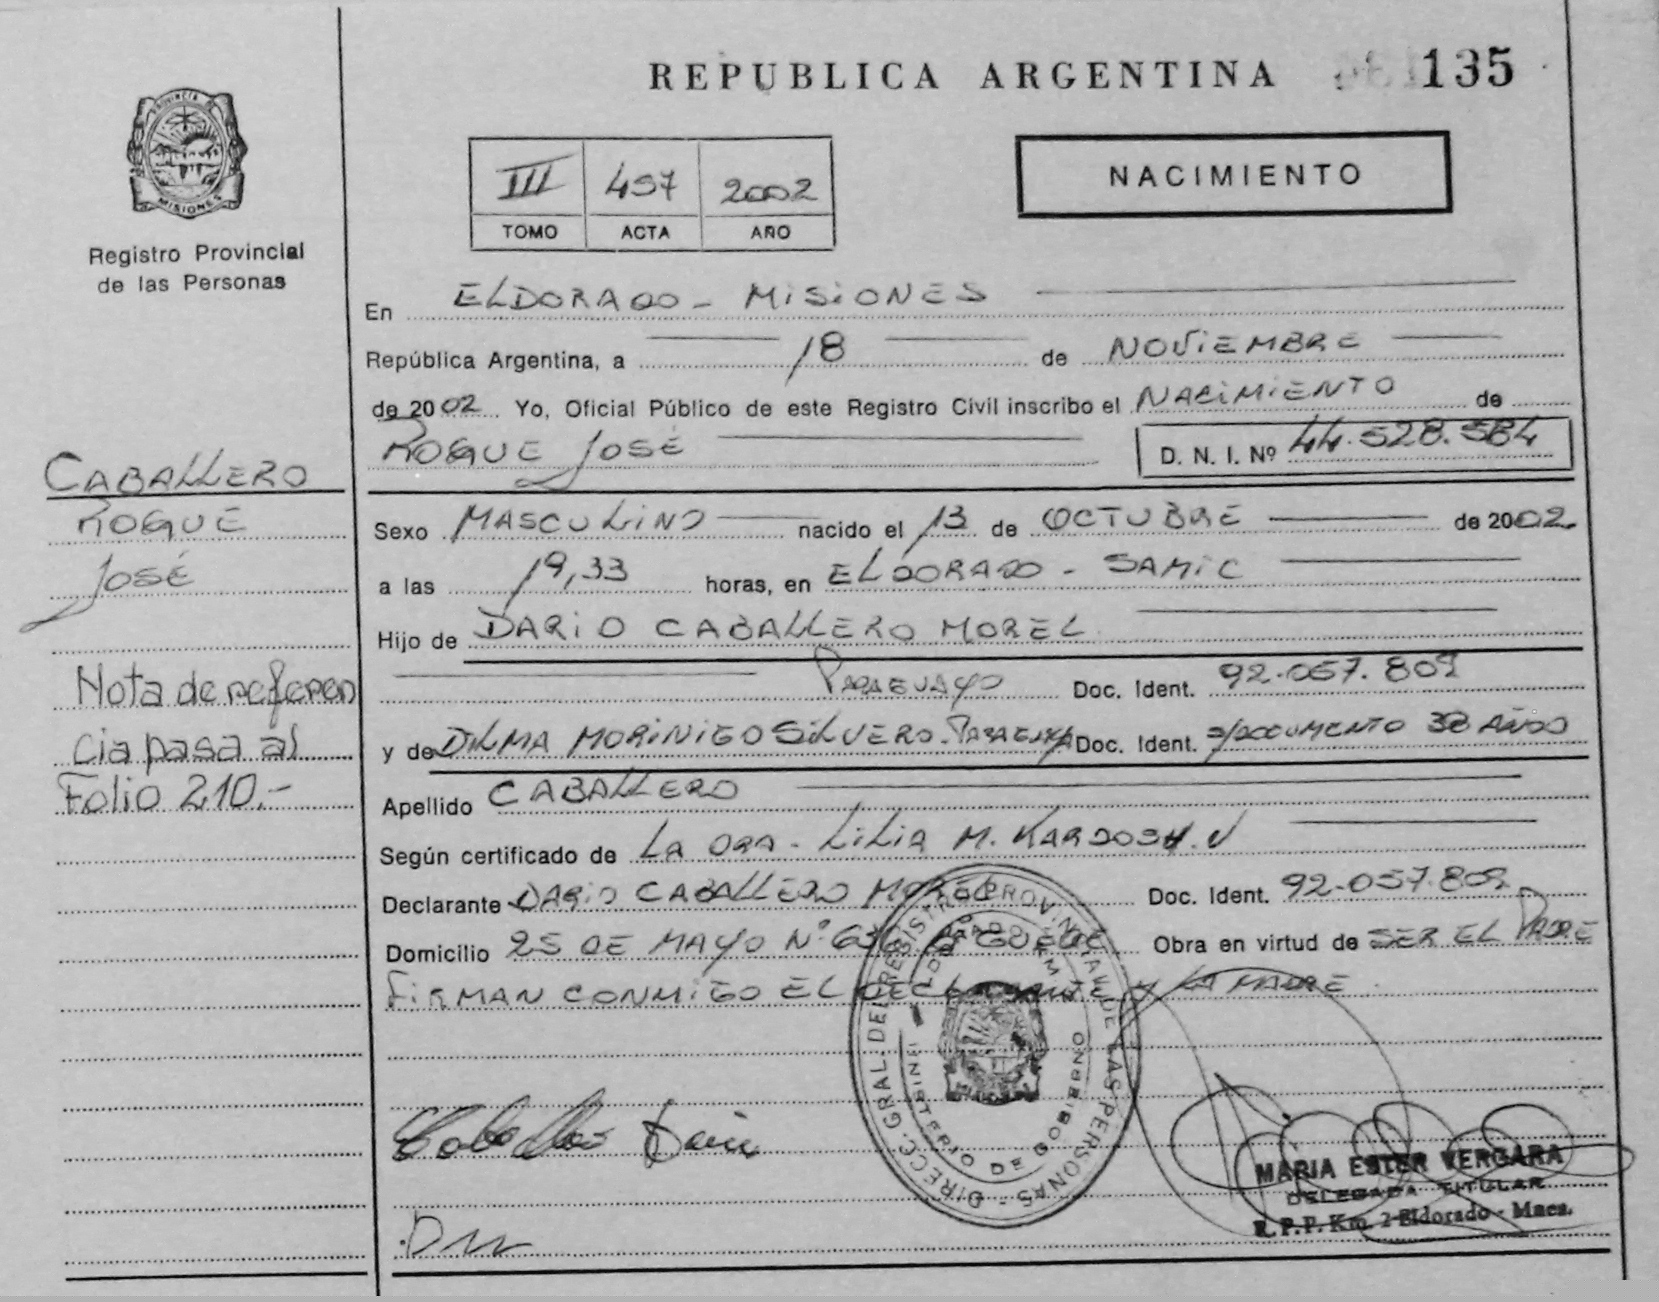 REPUBLICA ARGENTINA 135
PROVINCIA DE MISIONES
Registro Provincial
de las Personas
III 457 2002
TOMO ACTA AÑO
NACIMIENTO
En ELDORADO - MISIONES
República Argentina, a 18 de NOVIEMBRE
de 2002 Yo, Oficial Público de este Registro Civil inscribo el NACIMIENTO de
ROQUE JOSÉ D. N. I. Nº 44.528.584
CABALLERO
ROQUE
JOSÉ
Sexo MASCULINO nacido el 13 de OCTUBRE de 2002
a las 19,33 horas, en ELDORADO - SAMIC
Hijo de DARIO CABALLERO MOREL
PARAGUAYO Doc. Ident. 92.057.809
y de DILMA MORINIGO SILVERO - PARAGUAYA Doc. Ident. S/DOCUMENTO 38 AÑOS
Nota de referen
cia pasa al
Folio 210.-
Apellido CABALLERO
Según certificado de LA DRA. LILIA M.
Declarante DARIO CABALLERO MOREL Doc. Ident. 92.057.809
Domicilio 25 DE MAYO Nº Obra en virtud de SER EL PADRE
FIRMAN CONMIGO EL DECLARANTE Y LA MADRE.
DIRECC. GRAL. DEL REGISTRO PROVINCIAL DE LAS PERSONAS
MINISTERIO DE GOBIERNO
Caballero Dario
MARIA ESTER VERGARA
DELEGADA TITULAR
R. P. P. Km. 2 Eldorado - Mnes.